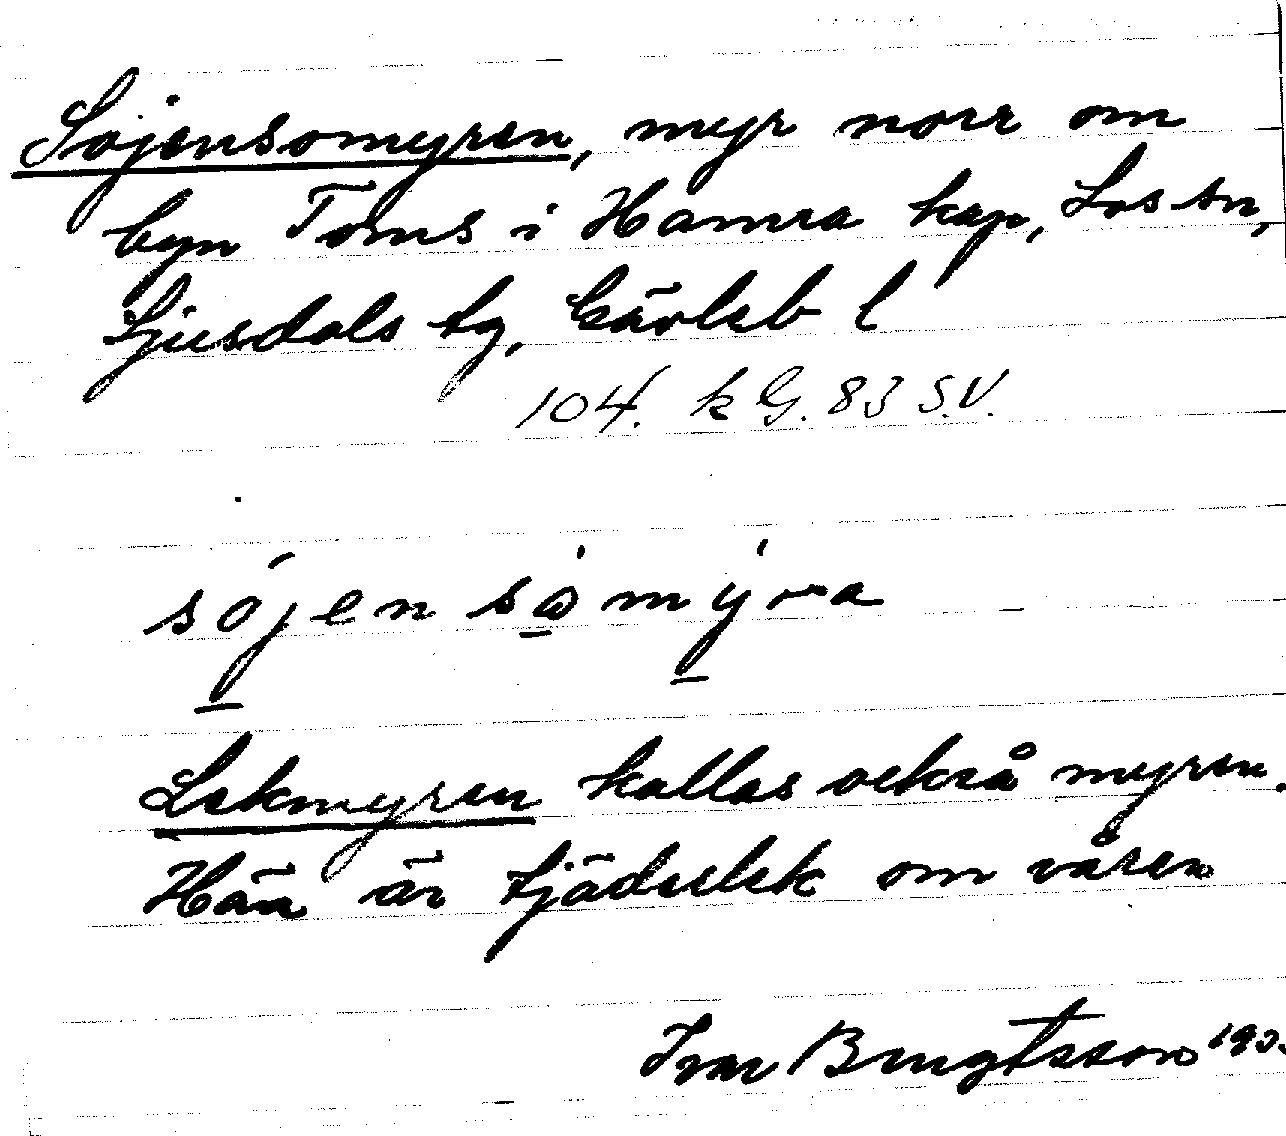 Söjensomyren, myr norr om
byn Toms i Hamra kap, Los sn,
Ljusdals tg, Gävleb l
104. k G. 83 S.V.
söjen såmyra
Lekmyren kallas också myren.
Här är tjäderlek om våren
Ivar Bengtsson 193